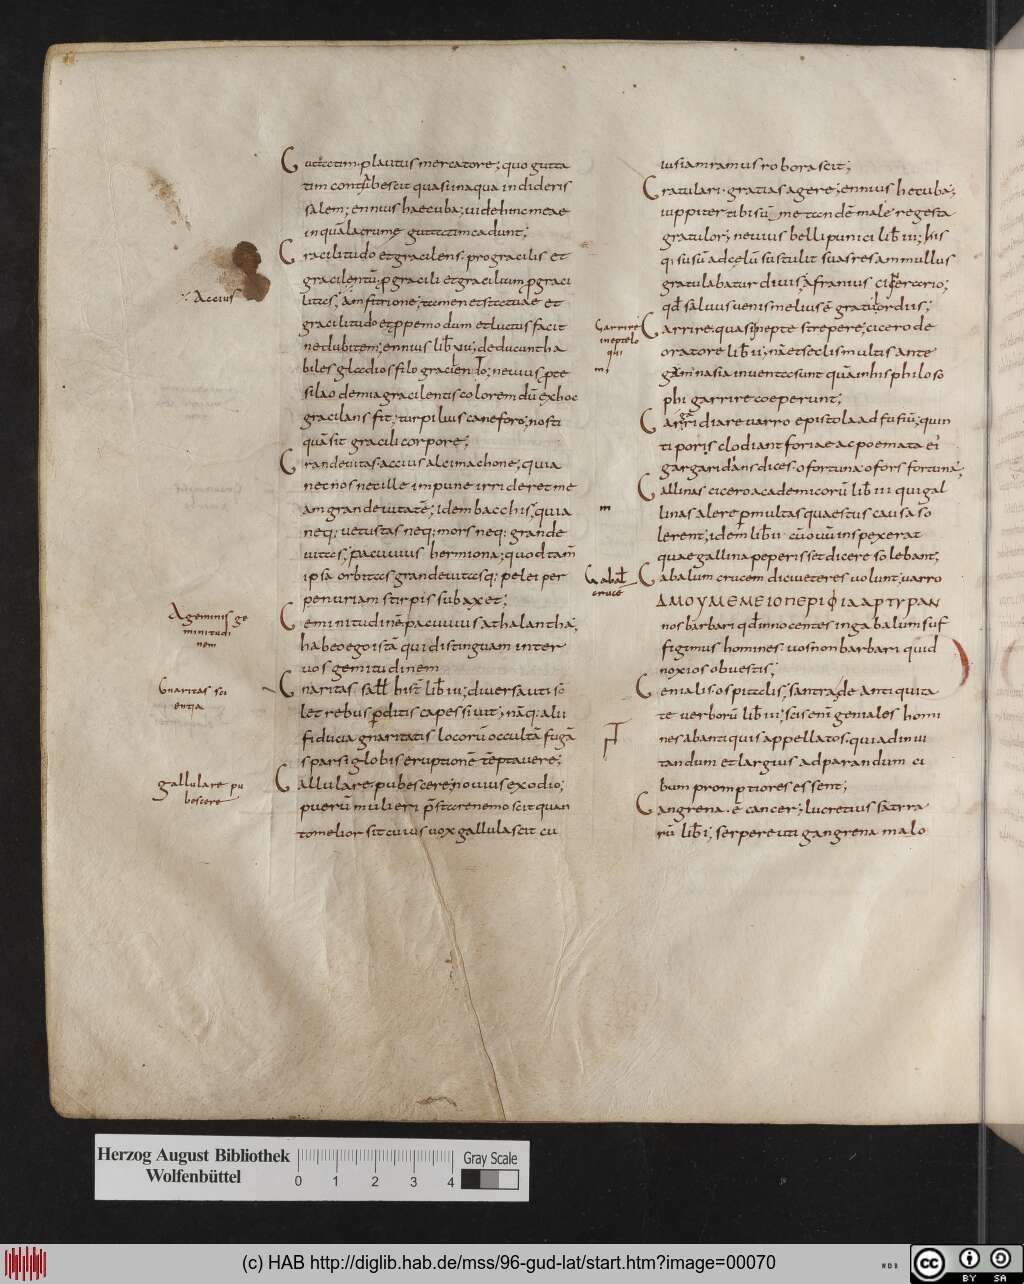 Guttatim· plautus mercatore; quo gutta
tim contabescit quasi in aqua indideris
salem; ennius haecuba; uide hinc meae
inquā lacrume guttatim cadunt;
Gracilitudo et gracilens· pro gracilis et
gracilentū; p gracili et gracilium p graci
Accius
litas; amfitrione; tamen et statuae et
gracilitudo et ppemodum et luctus facit
ne dubitem; ennius lib̄ xu; deducunt ha
biles gladios filo gracilento; neuius pate
sila o demia gracilentis colorem dū ex hoc
gracilans fit; turpilius caneforo; nosti
quā sit gracili corpore;
Grandeuitas accius alcimachone; quia
nec nos nec ille impune irrideret me
am grandeuitatē; idem bacchis; quia
neq; uetustas neq; mors neq; grande
uitas; pacuuius hermiona; quod tam̄
ipsa orbitas grandeuitasq; pelei per
penuriam stirpis subaxet;
A geminis ge
minitudi
nem
Geminitudinē pacuuius athalantha;
habeo ego istā qui distinguam inter
uos gemitudinem
Gnaritas sci
entia
Gnaritas· sall̄ hist̄ lib̄ iii; diuersa uti so
let rebus p̄ditis capessiuit; nāq; alii
fiducia gnaritatis locorū occultā fugā
sparsi globis eruptionē tēptauere;
gallulare pu
bescere
Gallulare· pubescere; nouius exodio;
puerū mulieri p̄stare nemo scit quan
to melior sit cuius uox gallulascit cu
ius iam ramus roborascit;
Gratulari· gratias agere; ennius hecuba;
iuppiter tibi sū me tandē male re gesta
gratulor; neuius belli punici lib̄ iii; his
qi susū ad celū sustulit suas res ammullus
gratulabatur diuis; afranius
qđ saluus uenis melius ē gratulor diis;
Garrire
inepte lo
qui
Garrire· quasi inepte strepere; cicero de
oratore lib̄ ii; nā et saeclis multis ante
gimnasia inuenta sunt quā in his philoso
phi garrire coeperunt;
Gargaridiare uarro epistola ad fufiū; quin
tiporis clodi antforia ac poemata ei
gargaridians dices· o fortuna· o fors fortuna;
Gallinas cicero academicorū lib̄ iii qui gal
m
linas alere pmultas quaestus causa so
lerent; idem lib̄ ii cū ouū inspexerat
quae gallina peperisset dicere solebant;
Gabal̄
crucē
Gabalum crucem dici ueteres uolunt; uarro
ΔΜΟΥ ΜΕΝΕΙΟ ΠΕΡΙΦΙΑΑΡΤΥΡΑΝ
nos barbari qđ innocentes in gabalum suf
figimus homines· uos non barbari quid
noxios obuestis;
Genialis ospitalis; santra de antiquita
te uerborū lib̄ iii; scis enī geniales homi
nes ab antiquis appellatos· qui ad inui
tandum et largius adparandum ci
bum promptiores essent;
Gangrena· ē cancer; lucretius satira
rū lib̄ i; serpere uti gangrena malo
Herzog August Bibliothek
Wolfenbüttel
0 1 2 3 4
Gray Scale
(c) HAB http://diglib.hab.de/mss/96-gud-lat/start.htm?image=00070
WDB
cc BY SA